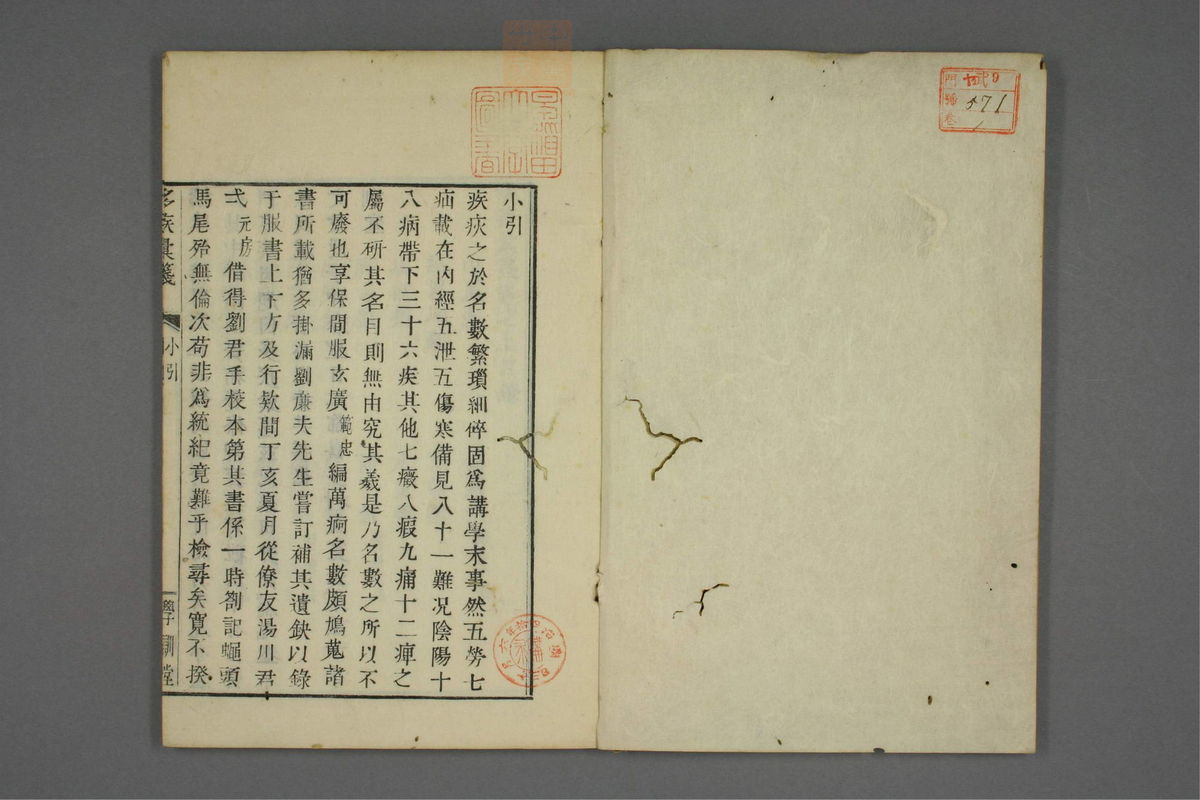 小引
疾疢之於名數繁瑣細碎固爲講學末事然五勞七
疝載在內經五泄五傷寒備見八十一難况陰陽十
八病帶下三十六疾其他七癥八瘕九痛十二痺之
屬不研其名目則無由究其義是乃名數之所以不
可廢也享保間服玄廣範忠編萬痾名數頗鳩蒐諸
書所載猶多掛漏劉廉夫先生嘗訂補其遺缺以錄
于服書上下方及行欵間丁亥夏月從僚友湯川君
弌元房借得劉君手校本第其書係一時劄記蠅頭
馬尾殆無倫次苟非爲統紀竟難乎檢尋矣寬不揆
疾彙箋
小引
學訓堂
門
號
卷
571